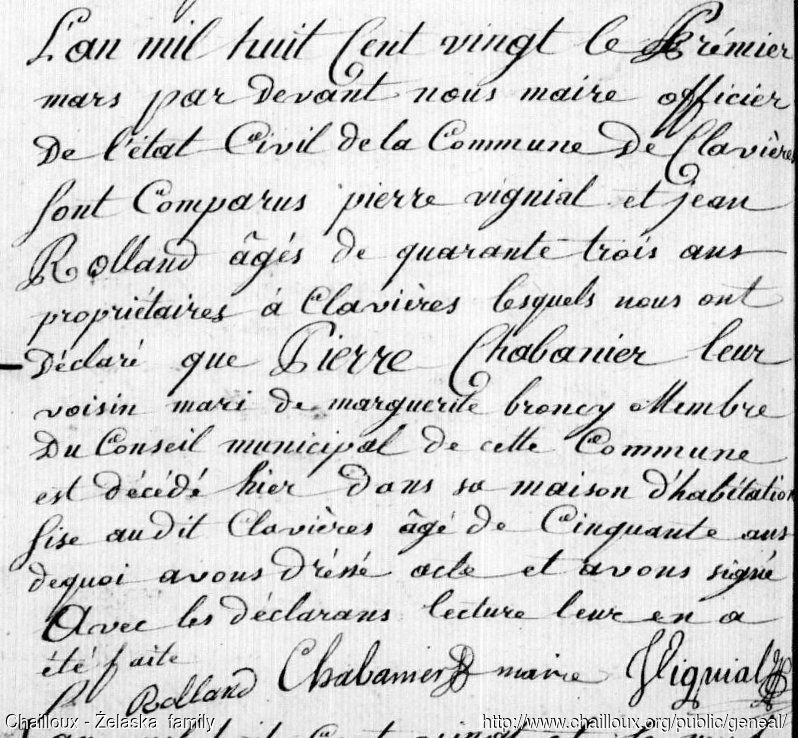 L'an mil huit Cent vingt le Prémier
mars par devant nous maire officier
De l'état Civil de la Commune De Clavières
sont Comparus pierre vignial et jean
Rolland âgés de quarante trois ans
propriétaires à Clavières lesquels nous ont
Déclaré que Pierre Chabanier leur
voisin mari de marguerite broncy Membre
Du Conseil municipal de cette Commune
est décédé hier dans sa maison d'habitation
sise audit Clavières âgé de Cinquante ans
dequoi avons dréssé acte et avons signé
Avec les déclarans lecture leur en a
été faite
Rolland Chabanier maire Vignial
Chailloux - Żelaska family http://www.chailloux.org/public/geneal/